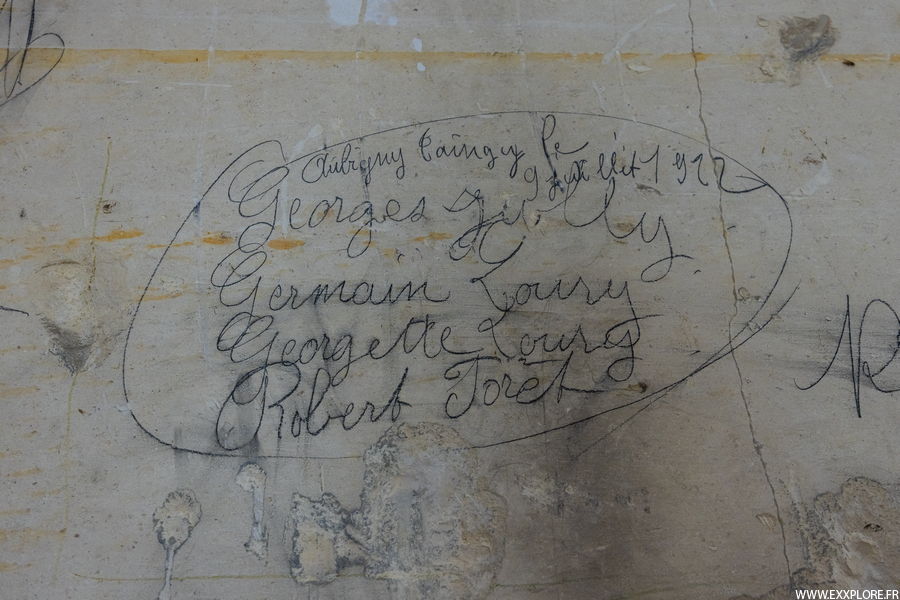 Aubigny Taingy le
9 Juillit 1922
Georges Jully
Germain Loury
Georgette Loury
Robert Foret
WWW.EXXPLORE.FR